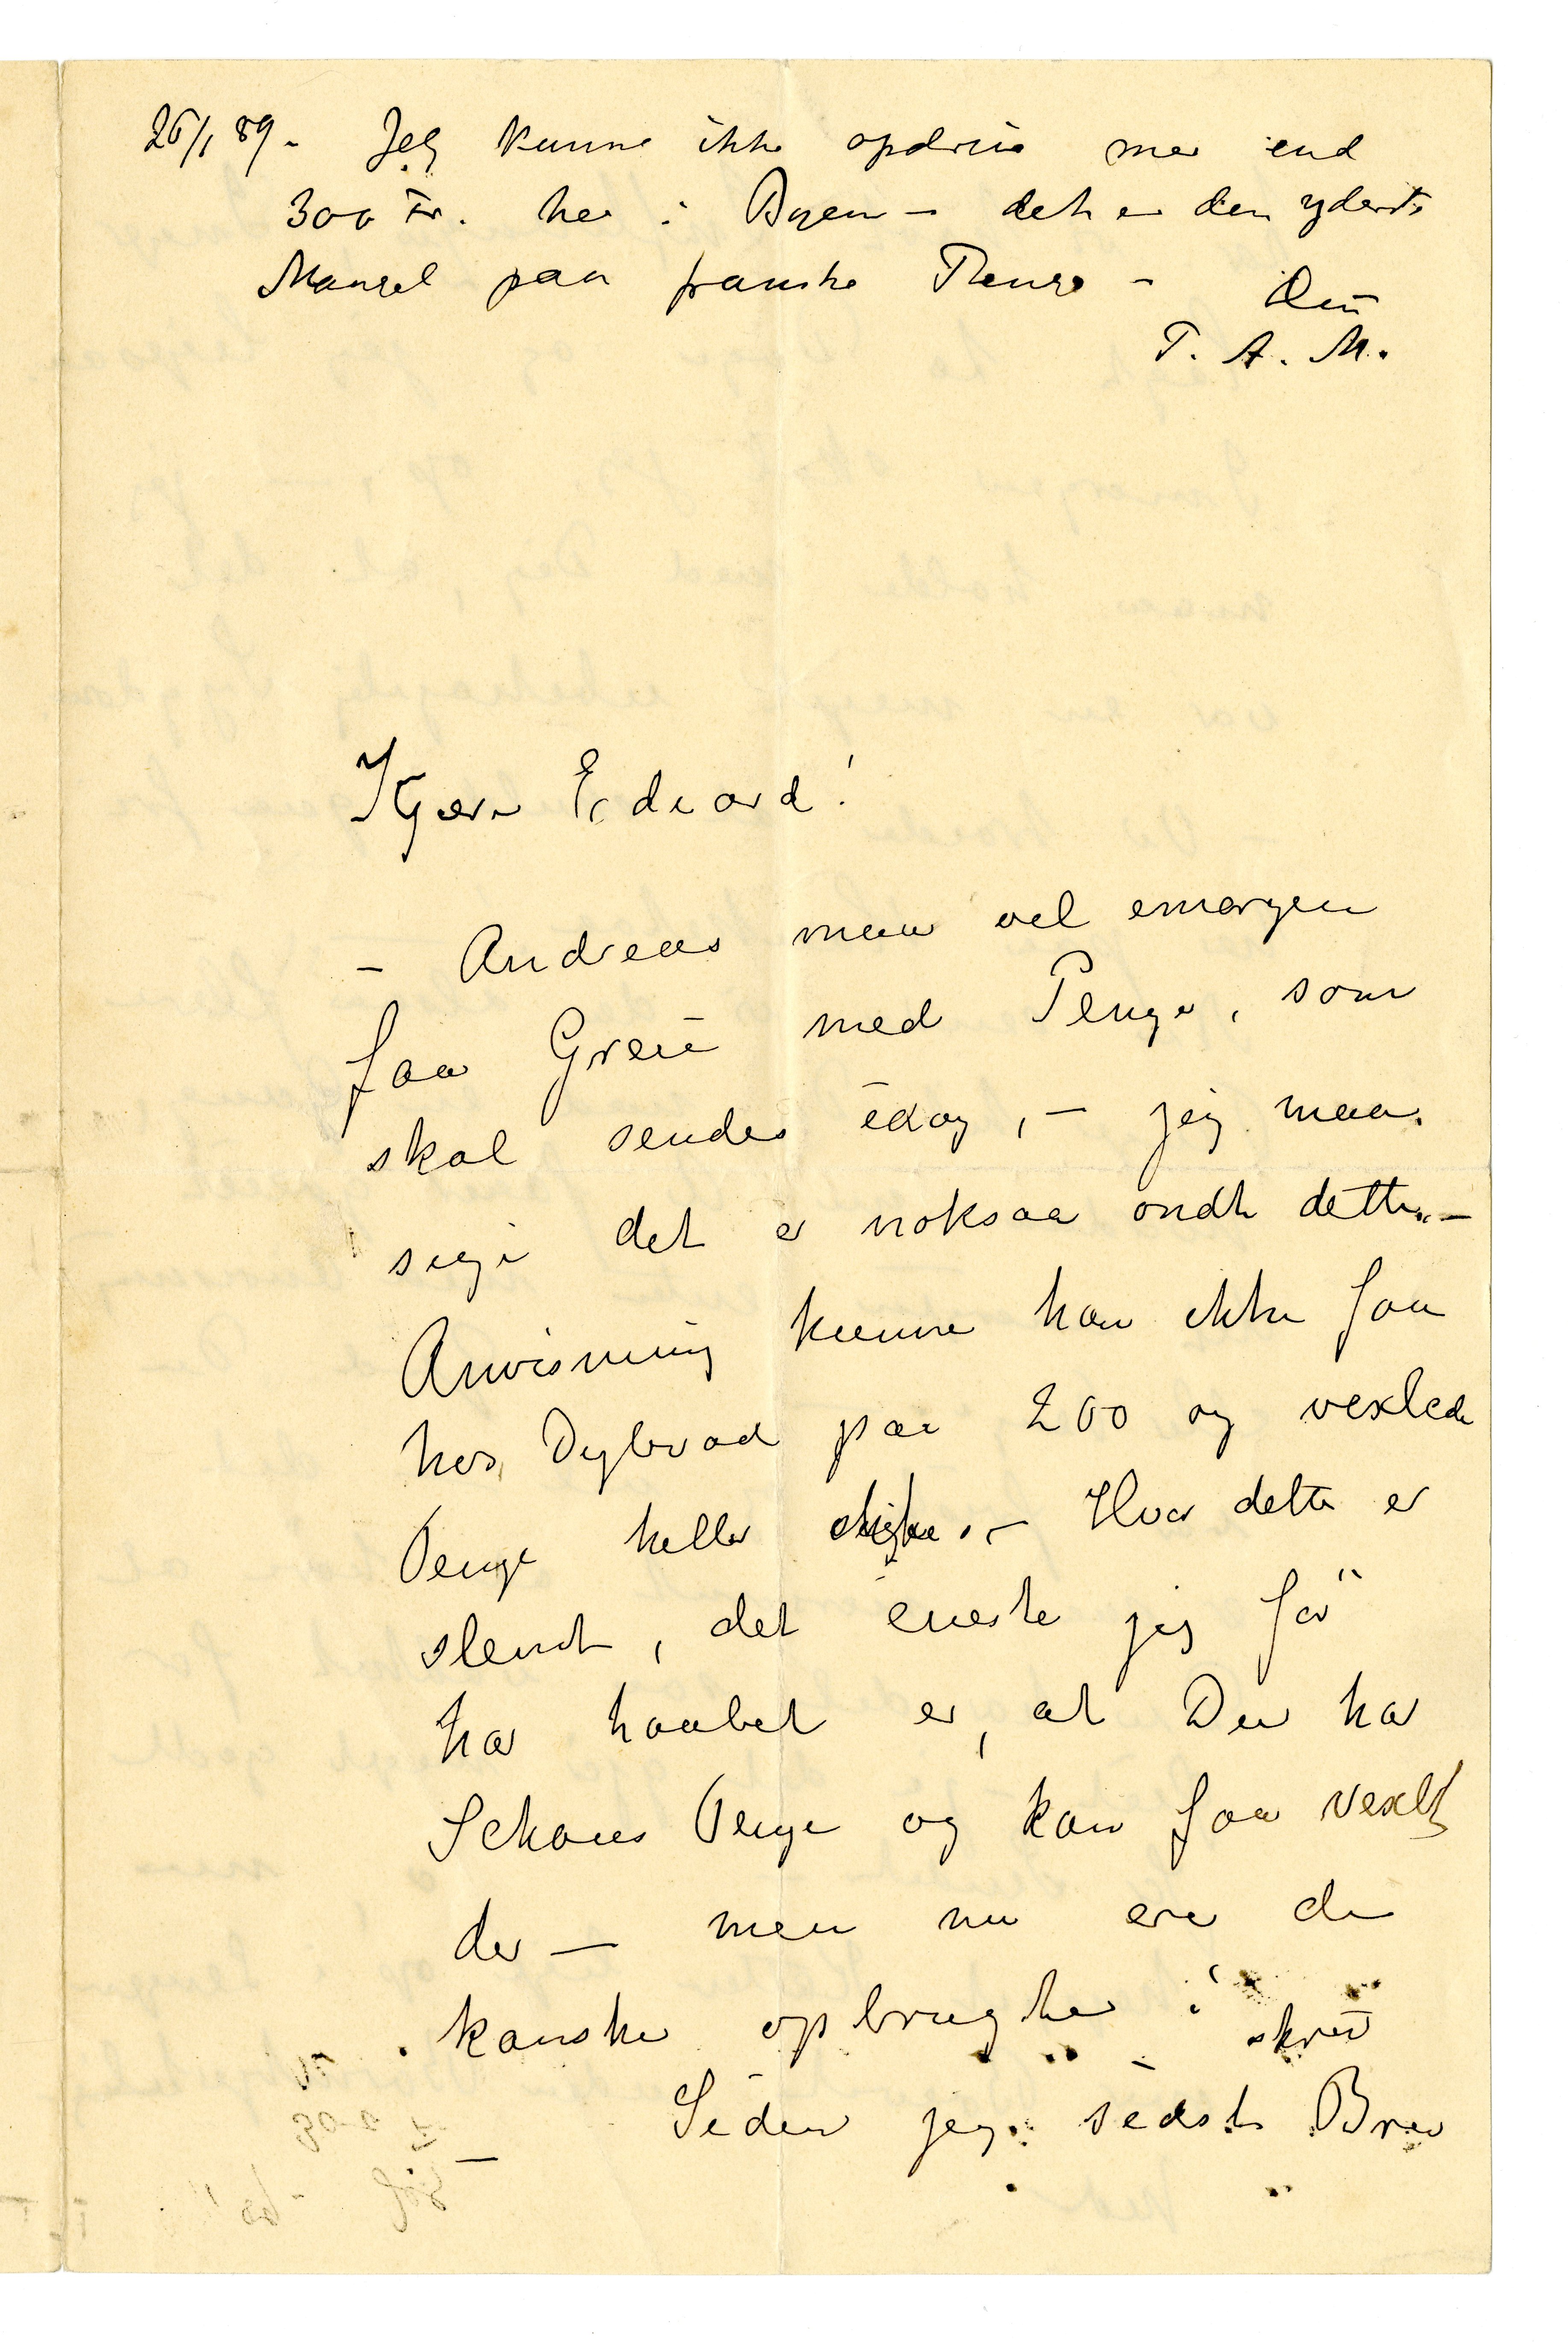 26/1 89 - Jeg kunne ikke opdrive mer end
300 Fr. her i Byen - det er den yderste
Mangel paa franske Penge - Din
P. A. M.
Kjære Edvard!
- Andreas maa vel imorgen
faa Greie med Penge, som
skal sendes idag, - jeg maa
sige det er noksaa ondt dette. -
Anvisning kunne han ikke faa
hos Dybvad paa 200 og vexlede
Penge heller ikke. - Hvor dette er
slemt, det eneste jeg før
har haabet er, at Du har
Schous Penge og kan faa vexlet
der - men nu ere de
kanske opbrugte!
- Siden jeg skrev sidste Brev